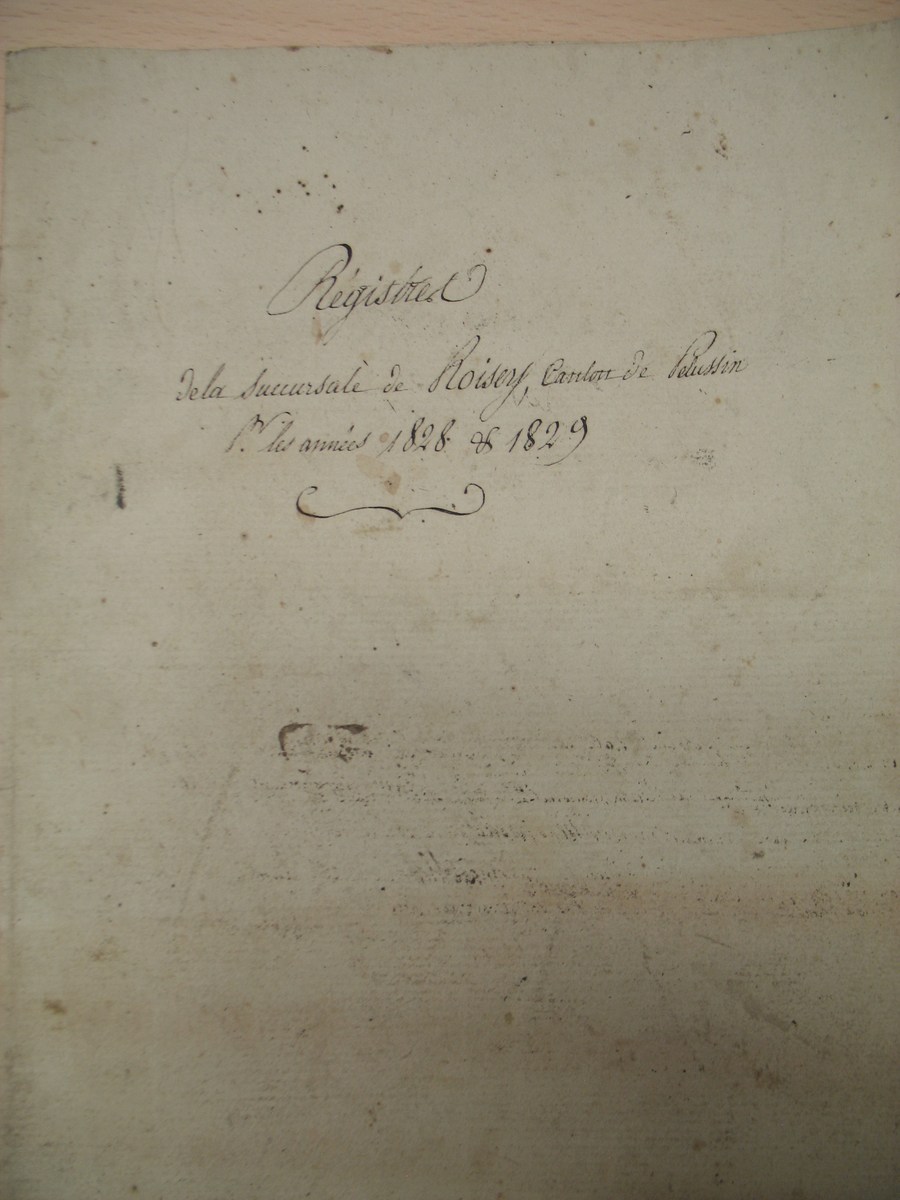 Régistres
de la succursale de Roisey, Canton de Pelussin
Pr les années 1828 & 1829